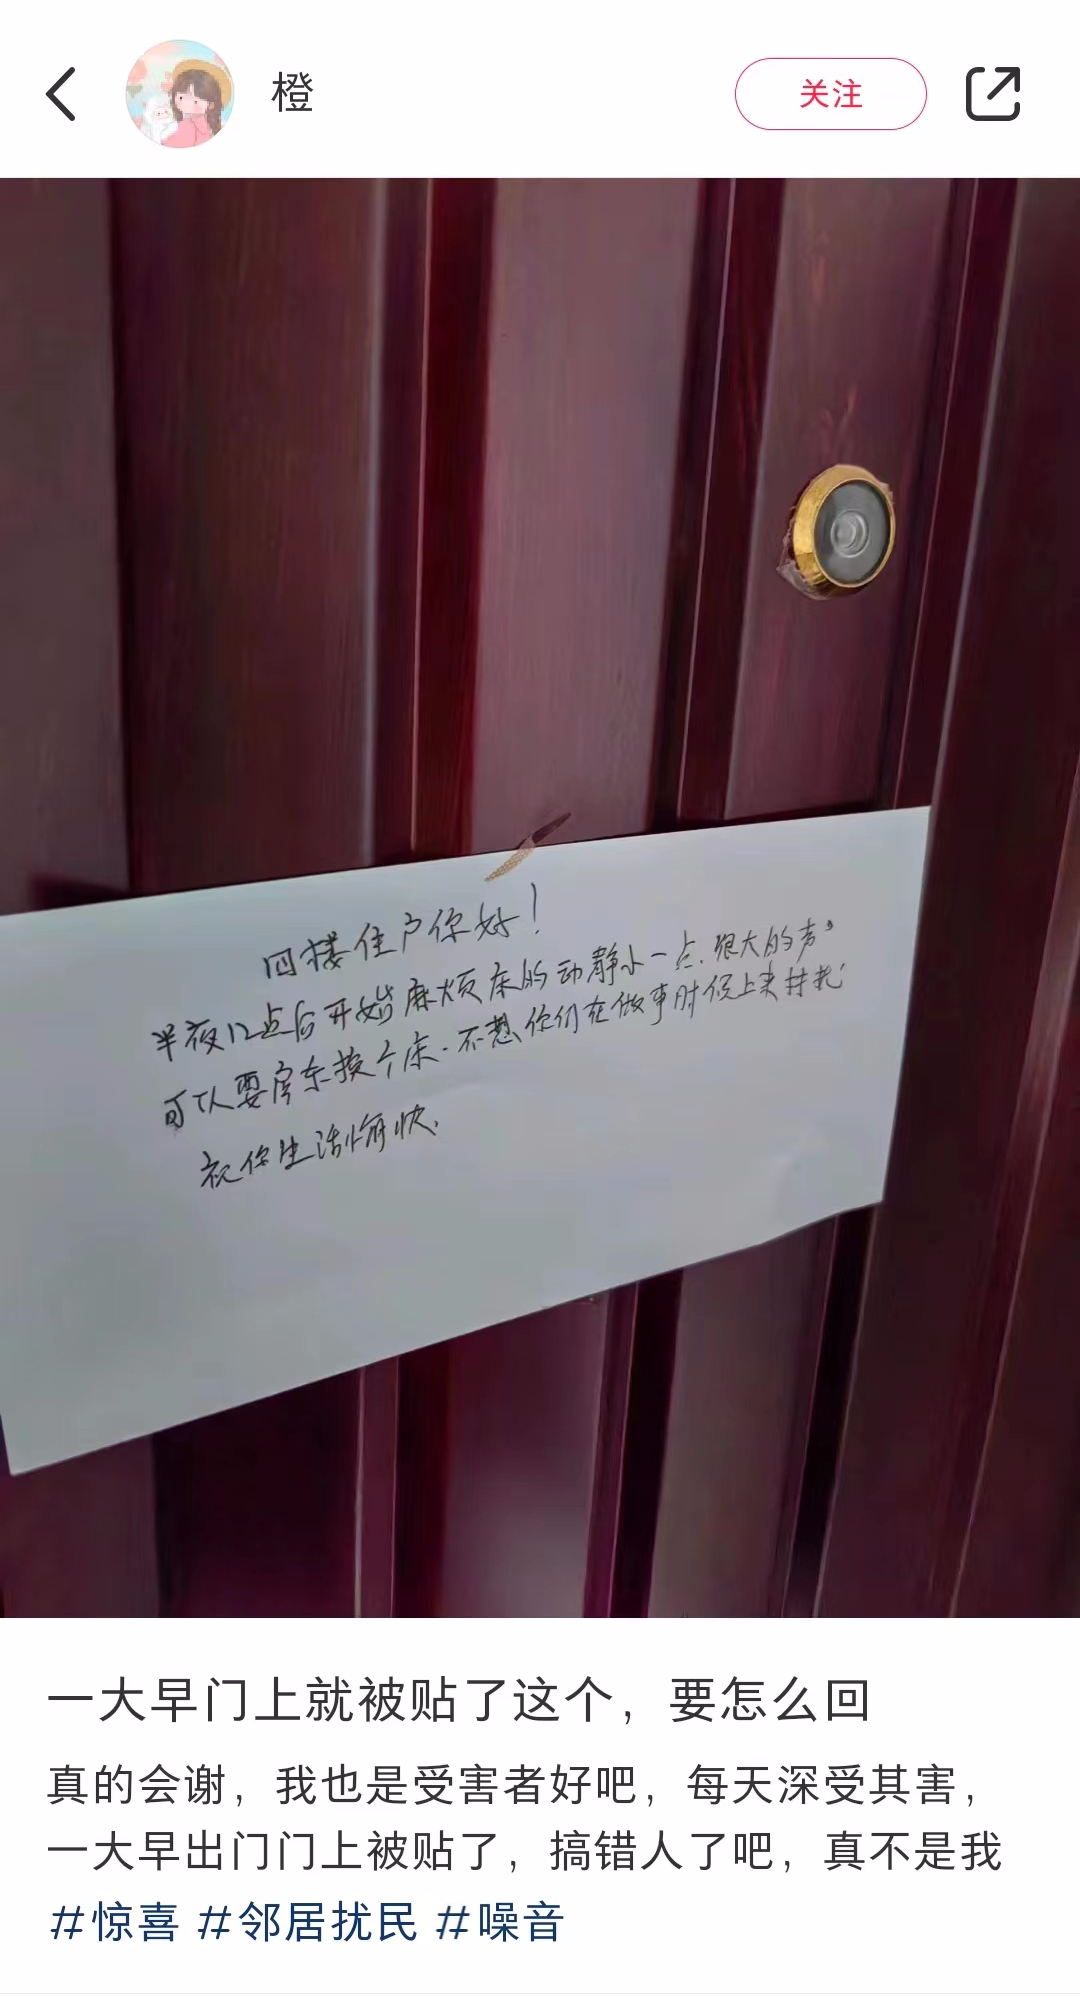 橙
关注
四楼住户你好!
半夜12点后开始麻烦床的动静小一点.很大的声,
可以要房东换个床.不想你们在做事时候上来找我!
祝你生活愉快.
一大早门上就被贴了这个，要怎么回
真的会谢，我也是受害者好吧，每天深受其害，
一大早出门门上被贴了，搞错人了吧，真不是我
#惊喜 #邻居扰民 #噪音